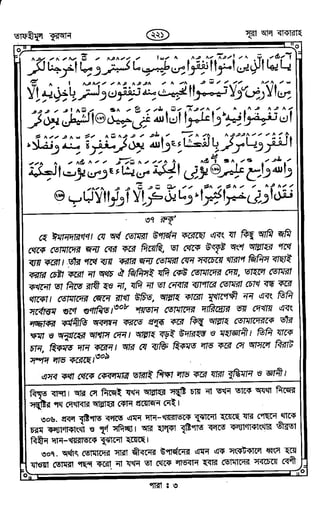 তাফহীমুল কুরআন
২২১
সূরা আল বাকারাহ
يٰۤاَيُّهَا الَّذِيْنَ اٰمَنُوْۤا اَنْفِقُوْا مِنْ طَيِّبٰتِ مَا كَسَبْتُمْ وَمِمَّاۤ اَخْرَجْنَا لَكُمْ
مِّنَ الْاَرْضِ وَلَا تَيَمَّمُوا الْخَبِيْثَ مِنْهُ تُنْفِقُوْنَ وَلَسْتُمْ بِاٰخِذِيْهِ اِلَّاۤ
اَنْ تُغْمِضُوْا فِيْهِ وَاعْلَمُوْۤا اَنَّ اللّٰهَ غَنِيٌّ حَمِيْدٌ اَلشَّيْطٰنُ يَعِدُكُمُ
الْفَقْرَ وَيَاْمُرُكُمْ بِالْفَحْشَآءِ وَاللّٰهُ يَعِدُكُمْ مَّغْفِرَةً مِّنْهُ وَفَضْلًا
وَاللّٰهُ وَاسِعٌ عَلِيْمٌ يُّؤْتِى الْحِكْمَةَ مَنْ يَّشَآءُ وَمَنْ يُّؤْتَ الْحِكْمَةَ
فَقَدْ اُوْتِيَ خَيْرًا كَثِيْرًا وَمَا يَذَّكَّرُ اِلَّاۤ اُولُوا الْاَلْبَابِ
৩৭ রুকূ'
হে ঈমানদারগণ! যে অর্থ তোমরা উপার্জন করেছো এবং যা কিছু আমি জমি
থেকে তোমাদের জন্য বের করে দিয়েছি, তা থেকে উৎকৃষ্ট অংশ আল্লাহর পথে
ব্যয় করো। তাঁর পথে ব্যয় করার জন্য তোমরা যেন সবচেয়ে খারাপ জিনিস বাছাই
করার চেষ্টা করো না অথচ ঐ জিনিসই যদি কেউ তোমাদের দেয়, তাহলে তোমরা
কখনো তা নিতে রাযী হও না, যদি না তা নেবার ব্যাপারে তোমরা চোখ বন্ধ করে
থাকো। তোমাদের জেনে রাখা উচিত, আল্লাহ কারো মুখাপেক্ষী নন এবং তিনি
সর্বোত্তম গুণে গুণান্বিত। শয়তান তোমাদের দারিদ্রের ভয় দেখায় এবং
লজ্জাকর কর্মনীতি অবলম্বন করতে প্রলুব্ধ করে কিন্তু আল্লাহ তোমাদেরকে তাঁর
ক্ষমা ও অনুগ্রহের আশ্বাস দেন। আল্লাহ বড়ই উদারহস্ত ও মহাজ্ঞানী। তিনি যাকে
চান, হিকমত দান করেন। আর যে ব্যক্তি হিকমত লাভ করে সে আসলে বিরাট
সম্পদ লাভ করেছে।
এসব কথা থেকে কেবলমাত্র তারাই শিক্ষা লাভ করে যারা বুদ্ধিমান ও জ্ঞানী।
বিস্তৃত ব্যাপা। আর সে নিজেই যখন আল্লাহর সন্তুষ্টি চায় না তখন তাকে অযথা নিজের
সন্তুষ্টির পথ দেখাবার আল্লাহর কোন প্রয়োজন নেই।
৩০৬. প্রবল বৃষ্টিপাত বলতে এমন দান-খয়রাতকে বুঝানো হয়েছে যার পেছনে থাকে
চরম কল্যাণাকাংখা ও পূর্ণ সদিচ্ছা। আর হালকা বৃষ্টিপাত বলতে কল্যাণাকাংখার তীব্রতা
বিহীন দান-খয়রাতকে বুঝানো হয়েছে।
৩০৭. অর্থাৎ তোমাদের সারা জীবনের উপার্জনের এমন এক সংকটকালে ধ্বংস হয়ে
যাওয়া তোমরা পছন্দ করো না যখন তা থেকে লাভবান হবার তোমাদের সবচেয়ে বেশী
পারা : ৩